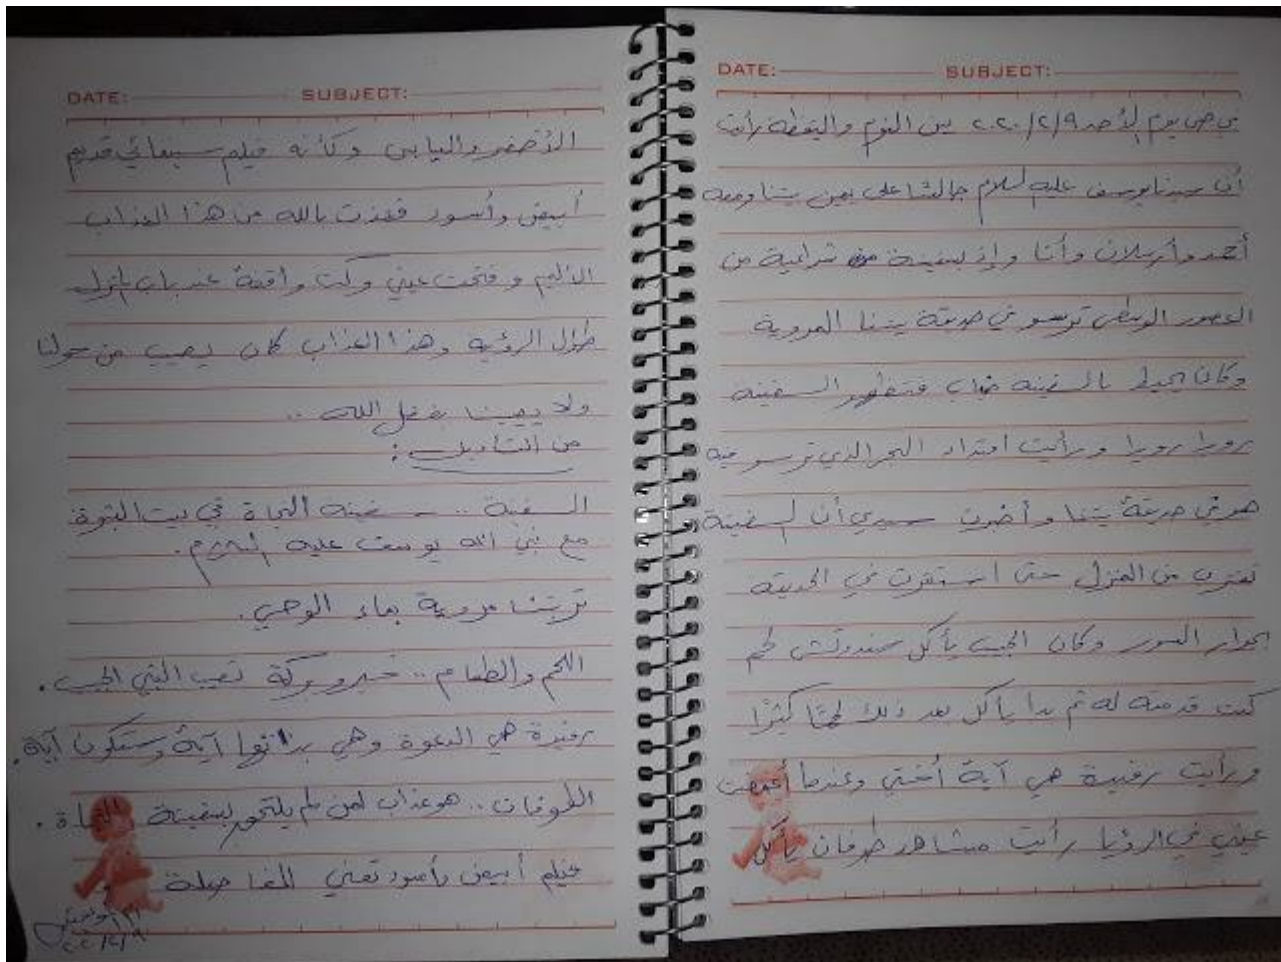 DATE: SUBJECT:
في صباح يوم الأحد ٢٠٢٠/٢/٩ بين النوم واليقظة رأيت
أن سيدنا يوسف عليه السلام جالسًا على يمين بيتنا ومعه
أحمد وأرسلان وأنا وإذ بسفينة شراعية من
العصور الوسطى ترسو في حديقة بيتنا المروية
وكان يحيط بالسفينة ضباب فتظهر السفينة
رويدا رويدا ورأيت امتداد البحر الذي ترسو فيه
هو في حديقة بيتنا وأخبرت سيدي أن السفينة
تقترب من المنزل حتى استقرت في الحديقة
بجوار السور وكان الحبيب يأكل سندوتش لحم
كنت قدمته له ثم بدا يأكل بعد ذلك لحمًا كثيرًا
ورأيت رفيدة هي آية أختي وعندما أغمضت
عيني في الرؤيا رأيت مشاهد طوفان يأكل
DATE: SUBJECT:
الأخضر واليابس وكأنه فيلم سينمائي قديم
أبيض وأسود فعذت بالله من هذا العذاب
الأليم وفتحت عيني وكنت واقفة عند باب المنزل
طوال الرؤية وهذا العذاب كان يصيب من حولنا
ولا يصيبنا بفضل الله ..
من التأويل :
السفينة .. سفينة النجاة في بيت النبوة
مع نبي الله يوسف عليه السلام .
تربتنا مروية بماء الوحي .
اللحم والطعام .. خير وبركة تصيب النبي الحبيب .
رفيدة هي الدعوة وهي بذاتها آية وستكون آية .
الطوفان .. هو عذاب لمن لم يلتحق بسفينة النجاة .
فيلم أبيض وأسود تعني المفاصلة
٢٠٢٠/٢/٩